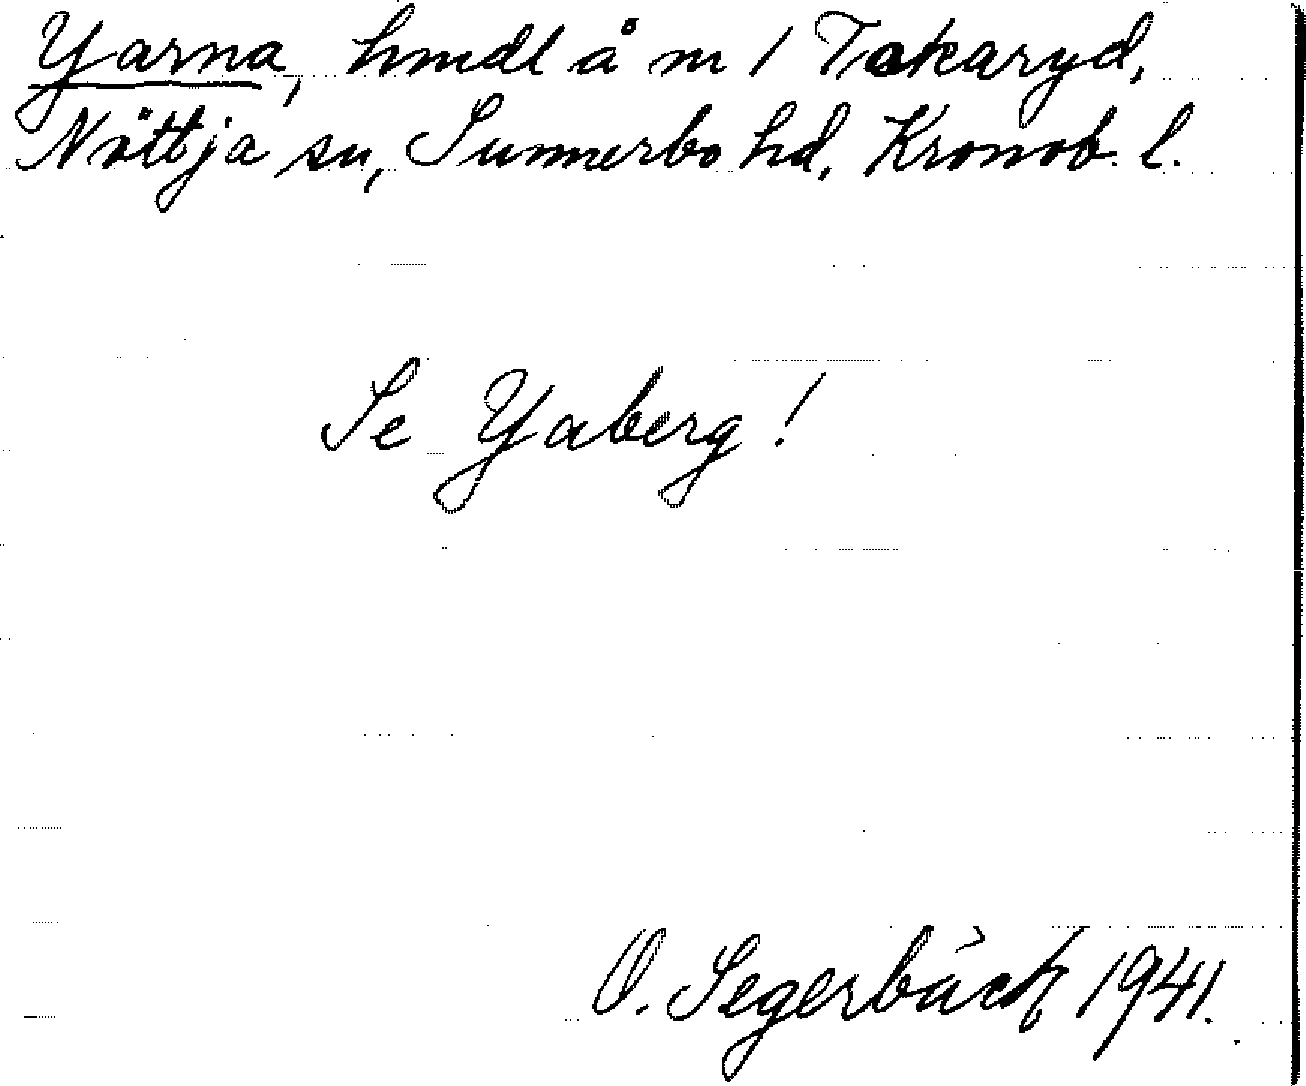 Yarna, hmdl å m 1 Tokaryd,
Nöttja sn, Sunnerbo hd, Kronob. l.
Se Yaberg!
O. Segerbäck 1941.